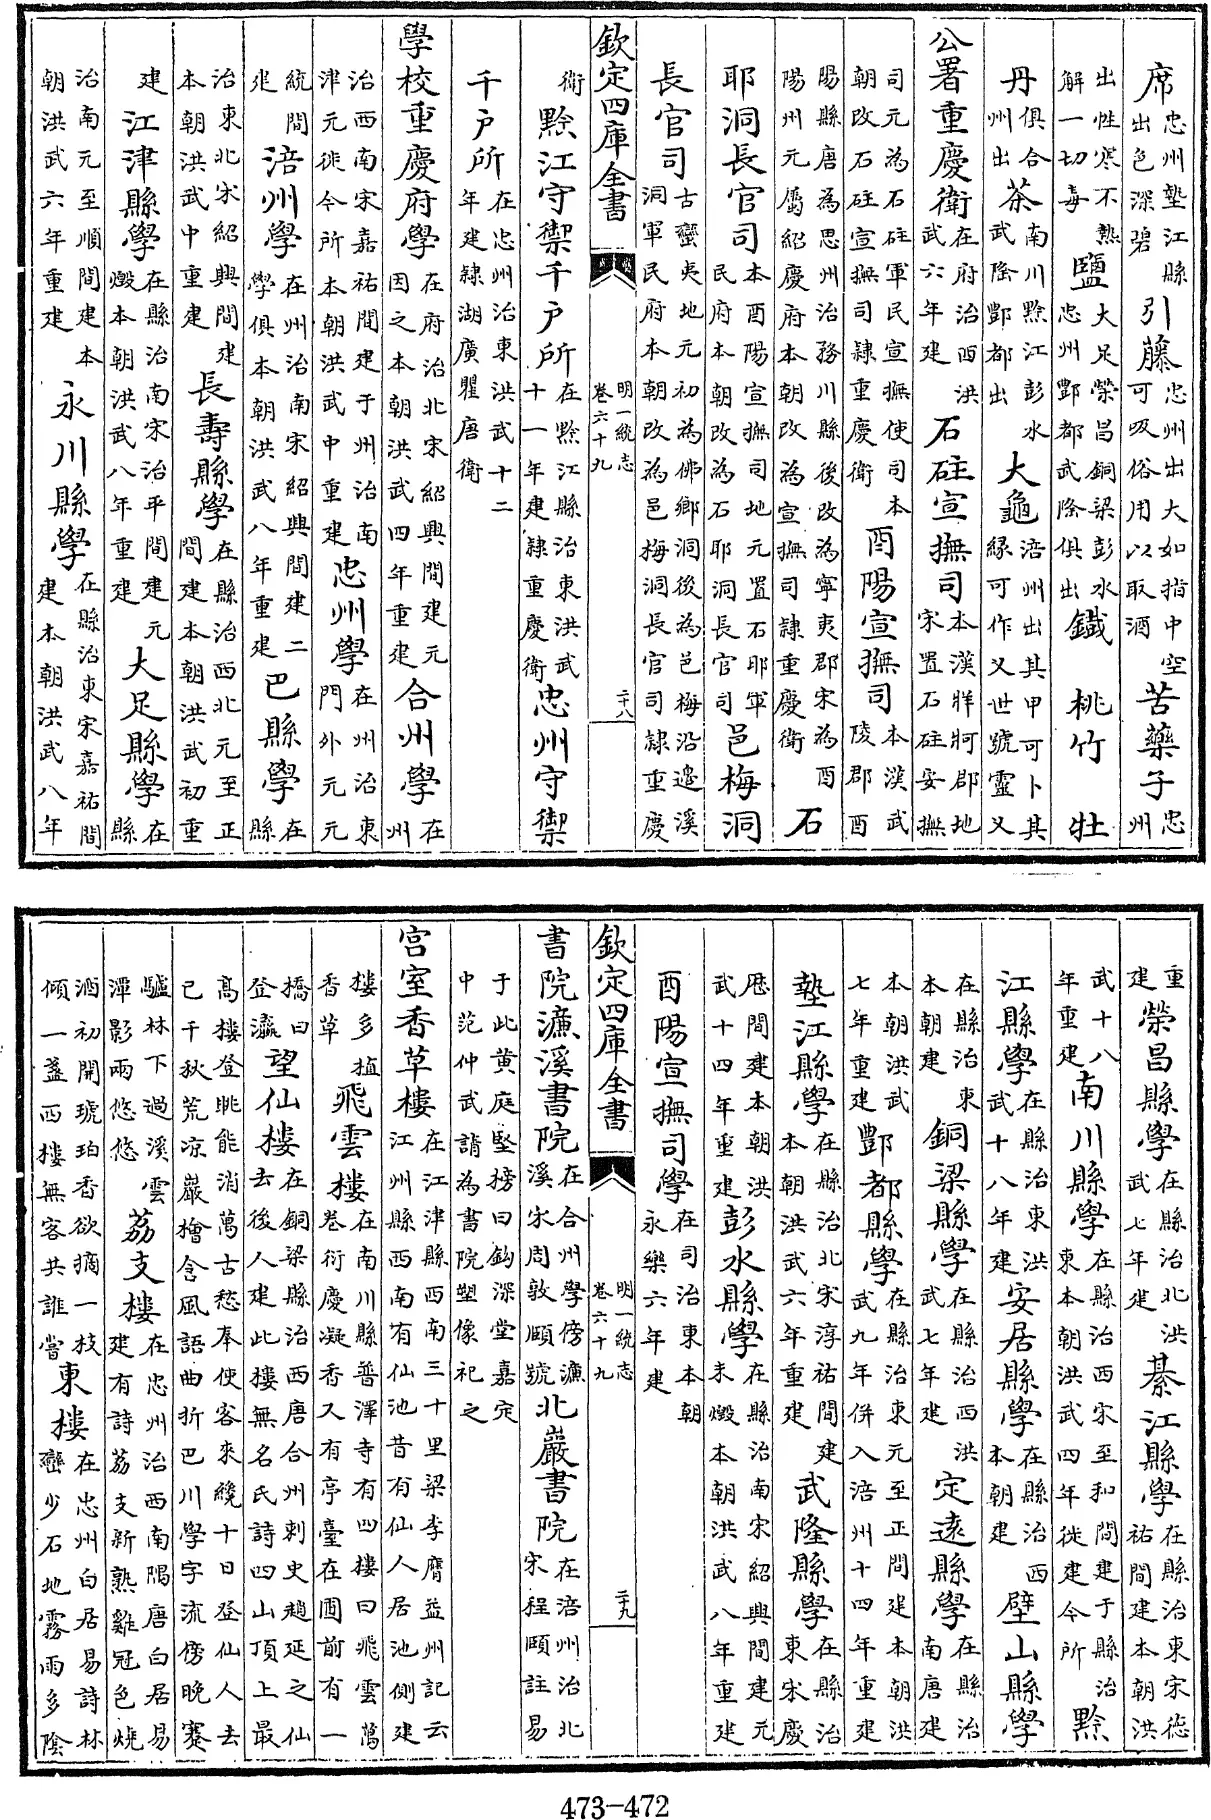 席忠州墊江縣出色深碧引藤忠州出大如指中空可吸俗用以取酒苦藥子忠州
出性寒不熱解一切毒鹽大足榮昌銅梁彭水忠州酆都武隆俱出鐵 桃竹 牡
丹俱合州出茶南川黔江彭水武隆酆都出大龜涪州出其甲可卜其緣可作叉世號靈叉
公署重慶衛在府治西洪武六年建石砫宣撫司本漢牂牁郡地宋置石砫安撫
司元為石砫軍民宣撫使司本朝改石砫宣撫司隸重慶衛酉陽宣撫司本漢武陵郡酉
陽縣唐為思州治務川縣後改為寧夷郡宋為酉陽州元屬紹慶府本朝改為宣撫司隸重慶衛石
耶洞長官司本酉陽宣撫司地元置石耶軍民府本朝改為石耶洞長官司邑梅洞
長官司古蠻夷地元初為佛鄉洞後為邑梅沿邊溪洞軍民府本朝改為邑梅洞長官司隸重慶
欽定四庫全書 明一統志 卷六十九 二十八
衛黔江守禦千戶所在黔江縣治東洪武十一年建隸重慶衛忠州守禦
千戶所在忠州治東洪武十二年建隸湖廣瞿唐衛
學校重慶府學在府治北宋紹興間建元因之本朝洪武四年重建合州學在州
治西南宋嘉祐間建于州治南津元徙今所本朝洪武中重建忠州學在州治東門外元元
統間兆涪州學在州治南宋紹興間建二學俱本朝洪武八年重建巴縣學在縣
治東北宋紹興間建本朝洪武中重建長壽縣學在縣治西北元至正間建本朝洪武初重
建江津縣學在縣治南宋治平間建元燬本朝洪武八年重建大足縣學在縣
治南元至順間建本朝洪武六年重建永川縣學在縣治東宋嘉祐間建本朝洪武八年
重建榮昌縣學在縣治北洪武七年建綦江縣學在縣治東宋德祐間建本朝洪
武十八年重建南川縣學在縣治西宋至和間建于縣治東本朝洪武四年徙建今所黔
江縣學在縣治東洪武十八年建安居縣學在縣治西本朝建壁山縣學
在縣治東本朝建銅梁縣學在縣治西洪武七年建定遠縣學在縣治南唐建
本朝洪武七年重建酆都縣學在縣治東元至正間建本朝洪武九年併入涪州十四年重建
墊江縣學在縣治北宋淳祐間建本朝洪武六年重建武隆縣學在縣治東宋慶
歷間建本朝洪武十四年重建彭水縣學在縣治南宋紹興間建元末燬本朝洪武八年重建
酉陽宣撫司學在司治東本朝永樂六年建
欽定四庫全書 明一統志 卷六十九 二十九
書院濂溪書院在合州學傍濂溪宋周敦頤號北巖書院在涪州治北宋程頤註易
于此黃庭堅榜曰鈎深堂嘉定中范仲武請為書院塑像祀之
宫室香草樓在江津縣西南三十里梁李膺益州記云江州縣西南有仙池昔有仙人居池側建
樓多植香草飛雲樓在南川縣普澤寺有四樓曰飛雲萬卷衍慶凝香又有亭臺在圃前有一
橋曰登瀛望仙樓在銅梁縣治西唐合州刺史趙延之仙去後人建此樓無名氏詩四山頂上最
高樓登眺能消萬古愁奉使客來纔十日登仙人去已千秋荒凉巖檜含風語曲折巴川學字流傍晚蹇
驢林下過溪雲潭影兩悠悠荔支樓在忠州治西南隅唐白居易建有詩荔支新熟雞冠色燒
酒初開琥珀香欲摘一枝傾一盞西樓無客共誰嘗東樓在忠州白居易詩林巒少石地霧雨多陰
473-472